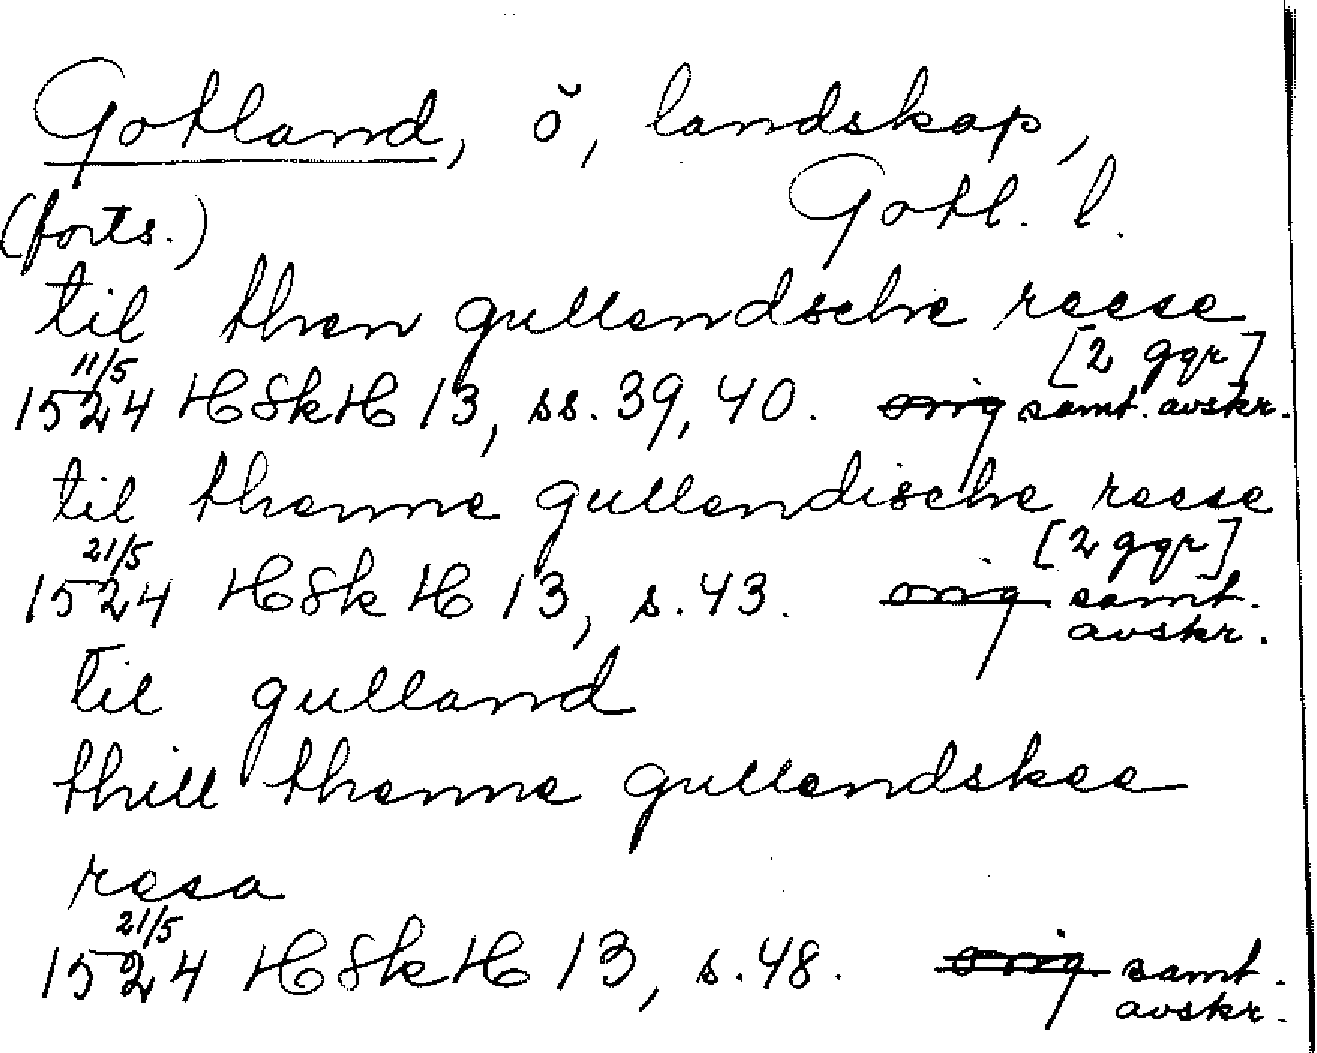 Gotland, ö, landskap,
(forts.) Gotl. l.
til then gullendsche reese
[2 ggr]
11/5
1524 HSkH 13, ss. 39, 40. orig samt. avskr.
til thenne gullendische reese
[2 ggr]
21/5
1524 HSkH 13, s. 43. orig samt.
avskr.
til gulland
thill thenne gullendskee
resa
21/5
1524 HSkH 13, s. 48. orig samt.
avskr.